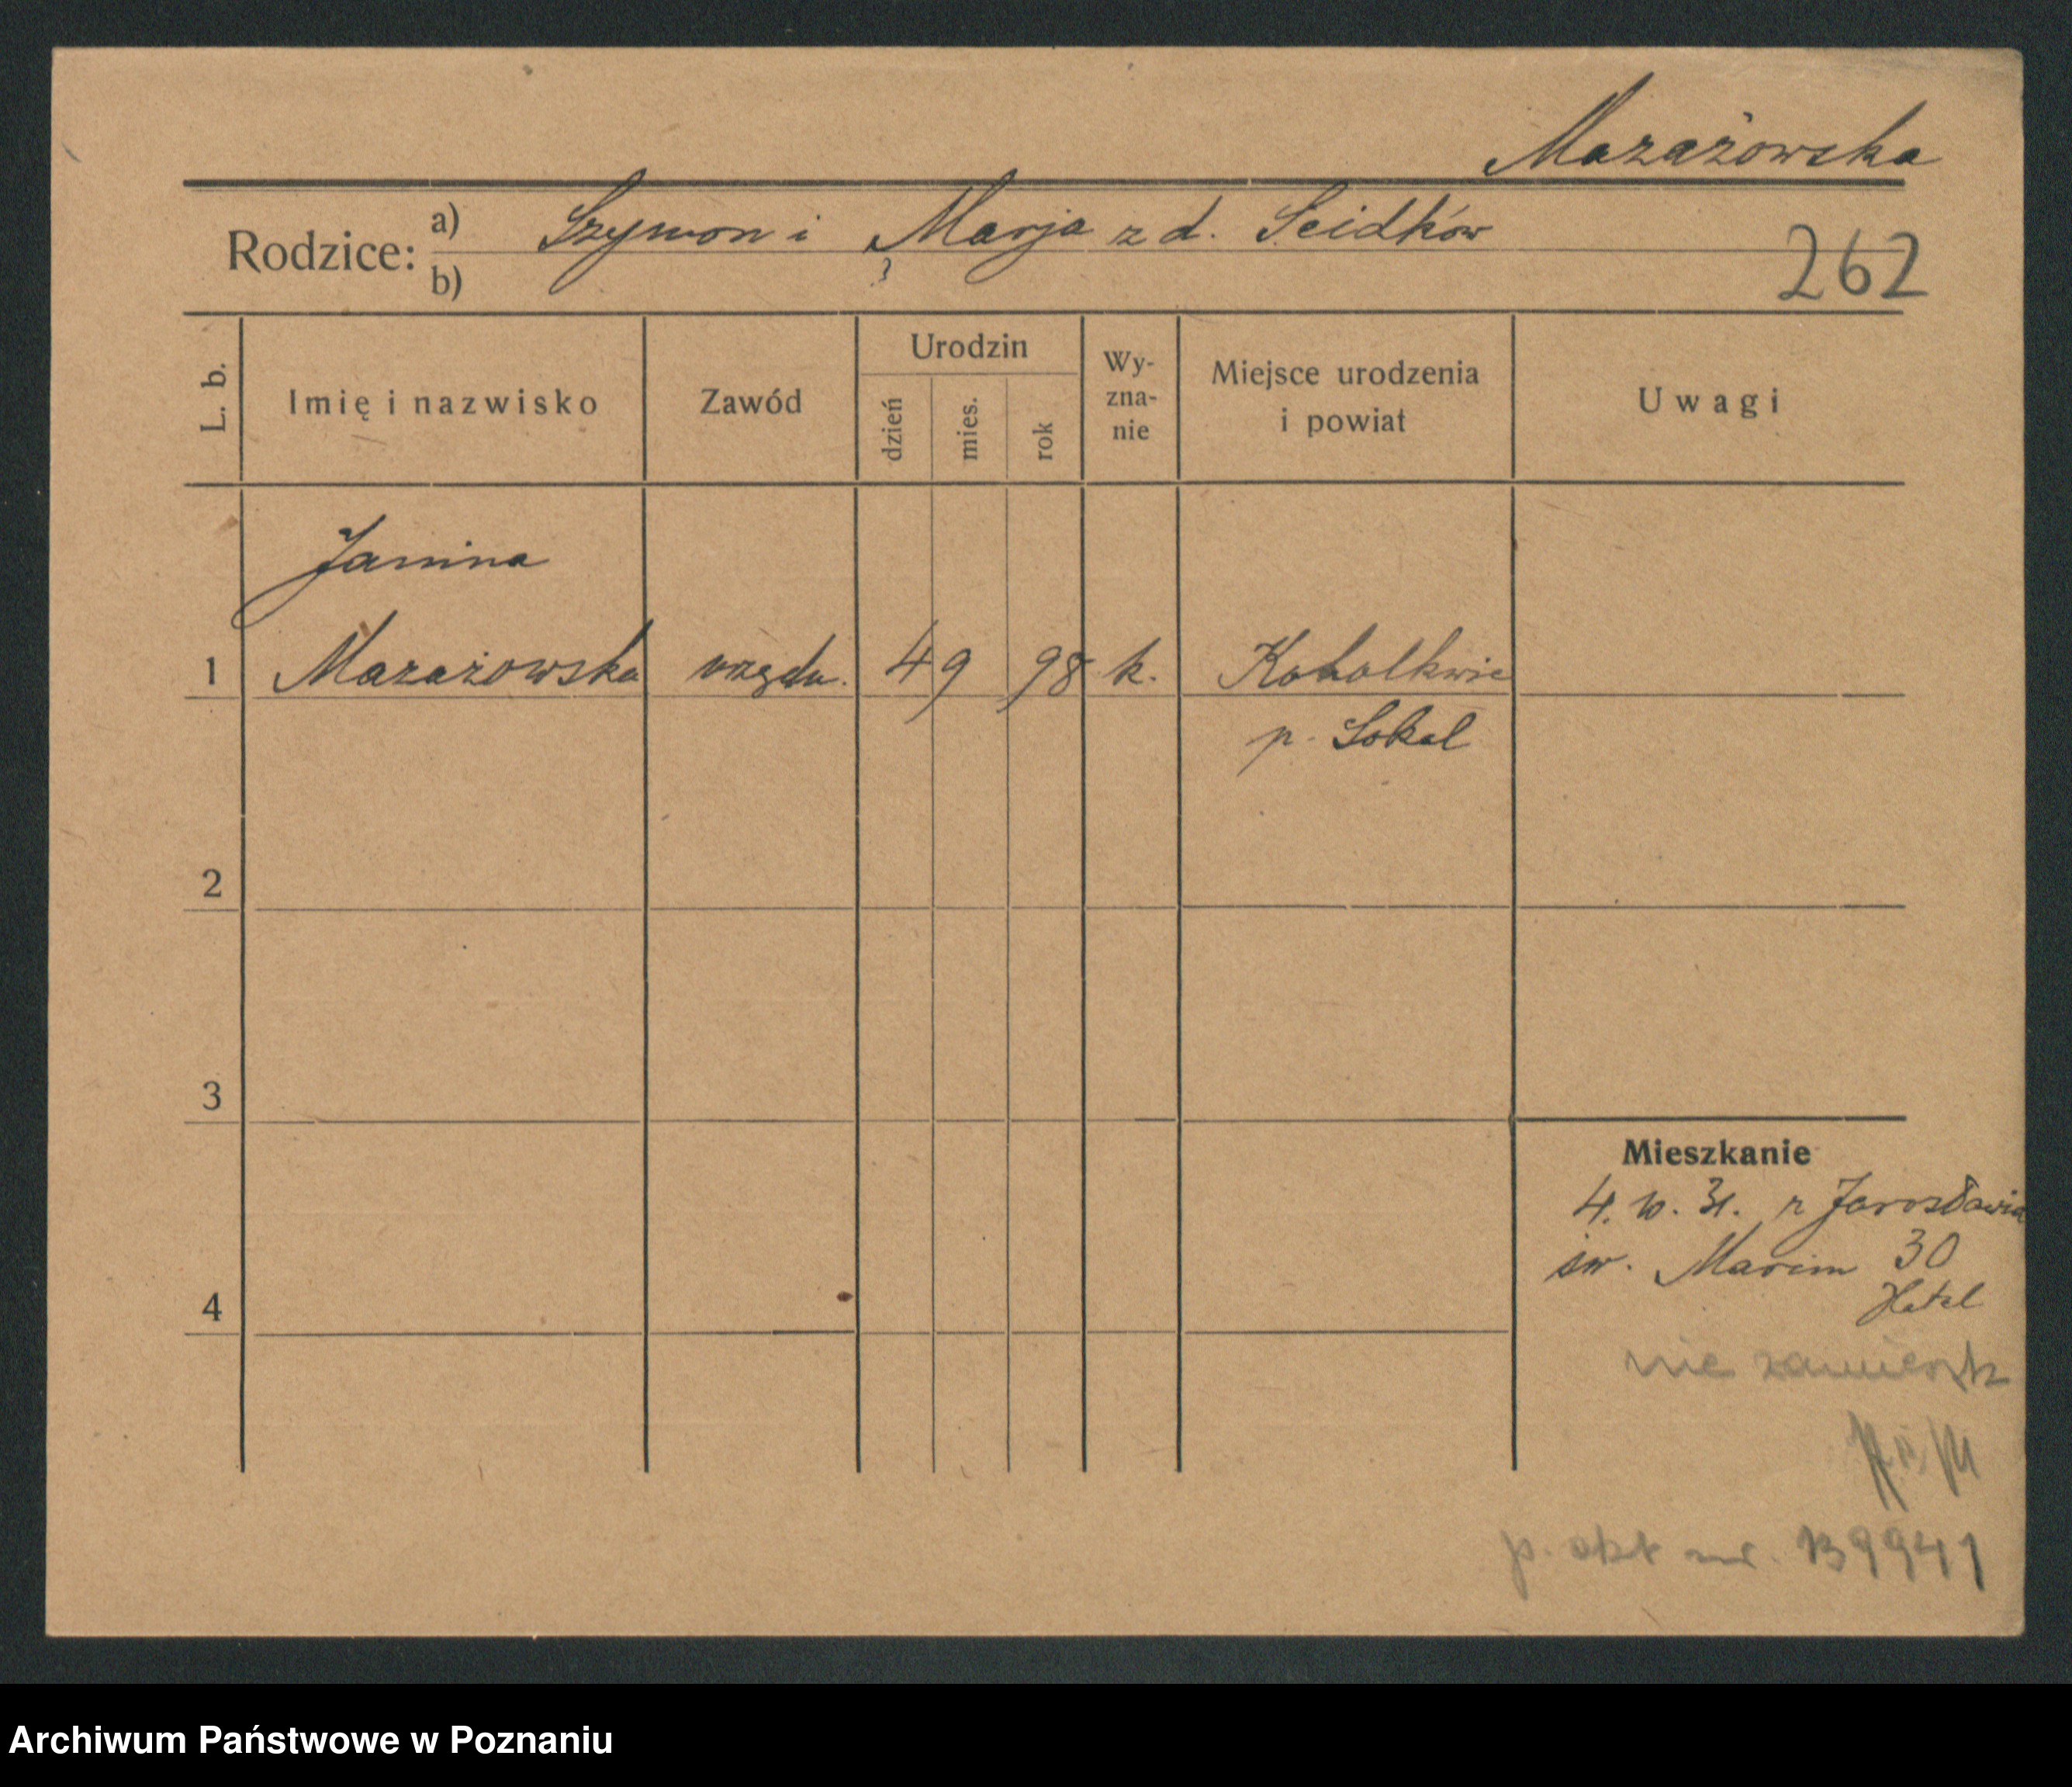 Mazażowska
Rodzice: a) Szymon i Marja z d. Seidków
b)
262
L. b.
Imię i nazwisko
Zawód
Urodzin
dzień
mies.
rok
Wy-
zna-
nie
Miejsce urodzenia
i powiat
Uwagi
Janina
1 Mazażowska urzędn. 4 9 98 k.
p. Sokal
2
3
4
Mieszkanie
4. 10. 31. z Jarosławia
św. Marcin 30
Hotel
nie zamieszk
p. akt nr. 139941
Archiwum Państwowe w Poznaniu